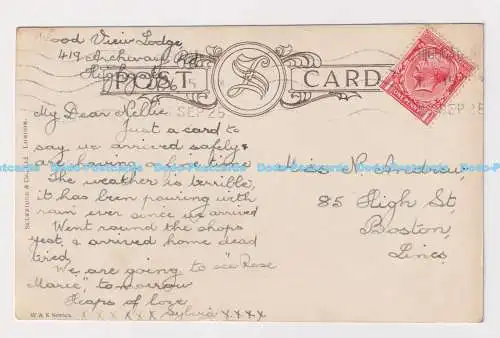 Wood View Lodge
419 Archway Rd
Highgate
POST CARD
SEP 25
SEP 25
My Dear Nellie
Just a card to
say we arrived safely &
are having a fine time
The weather is terrible,
it has been pouring with
rain ever since we arrived
Went round the shops
yest, & arrived home dead
tired.
We are going to see "Rose
Marie," to-morrow
Heaps of love
x x x x x x Sylvia x x x x
Miss N. Andrew,
85 High St,
Boston,
Lincs,
LONDON.